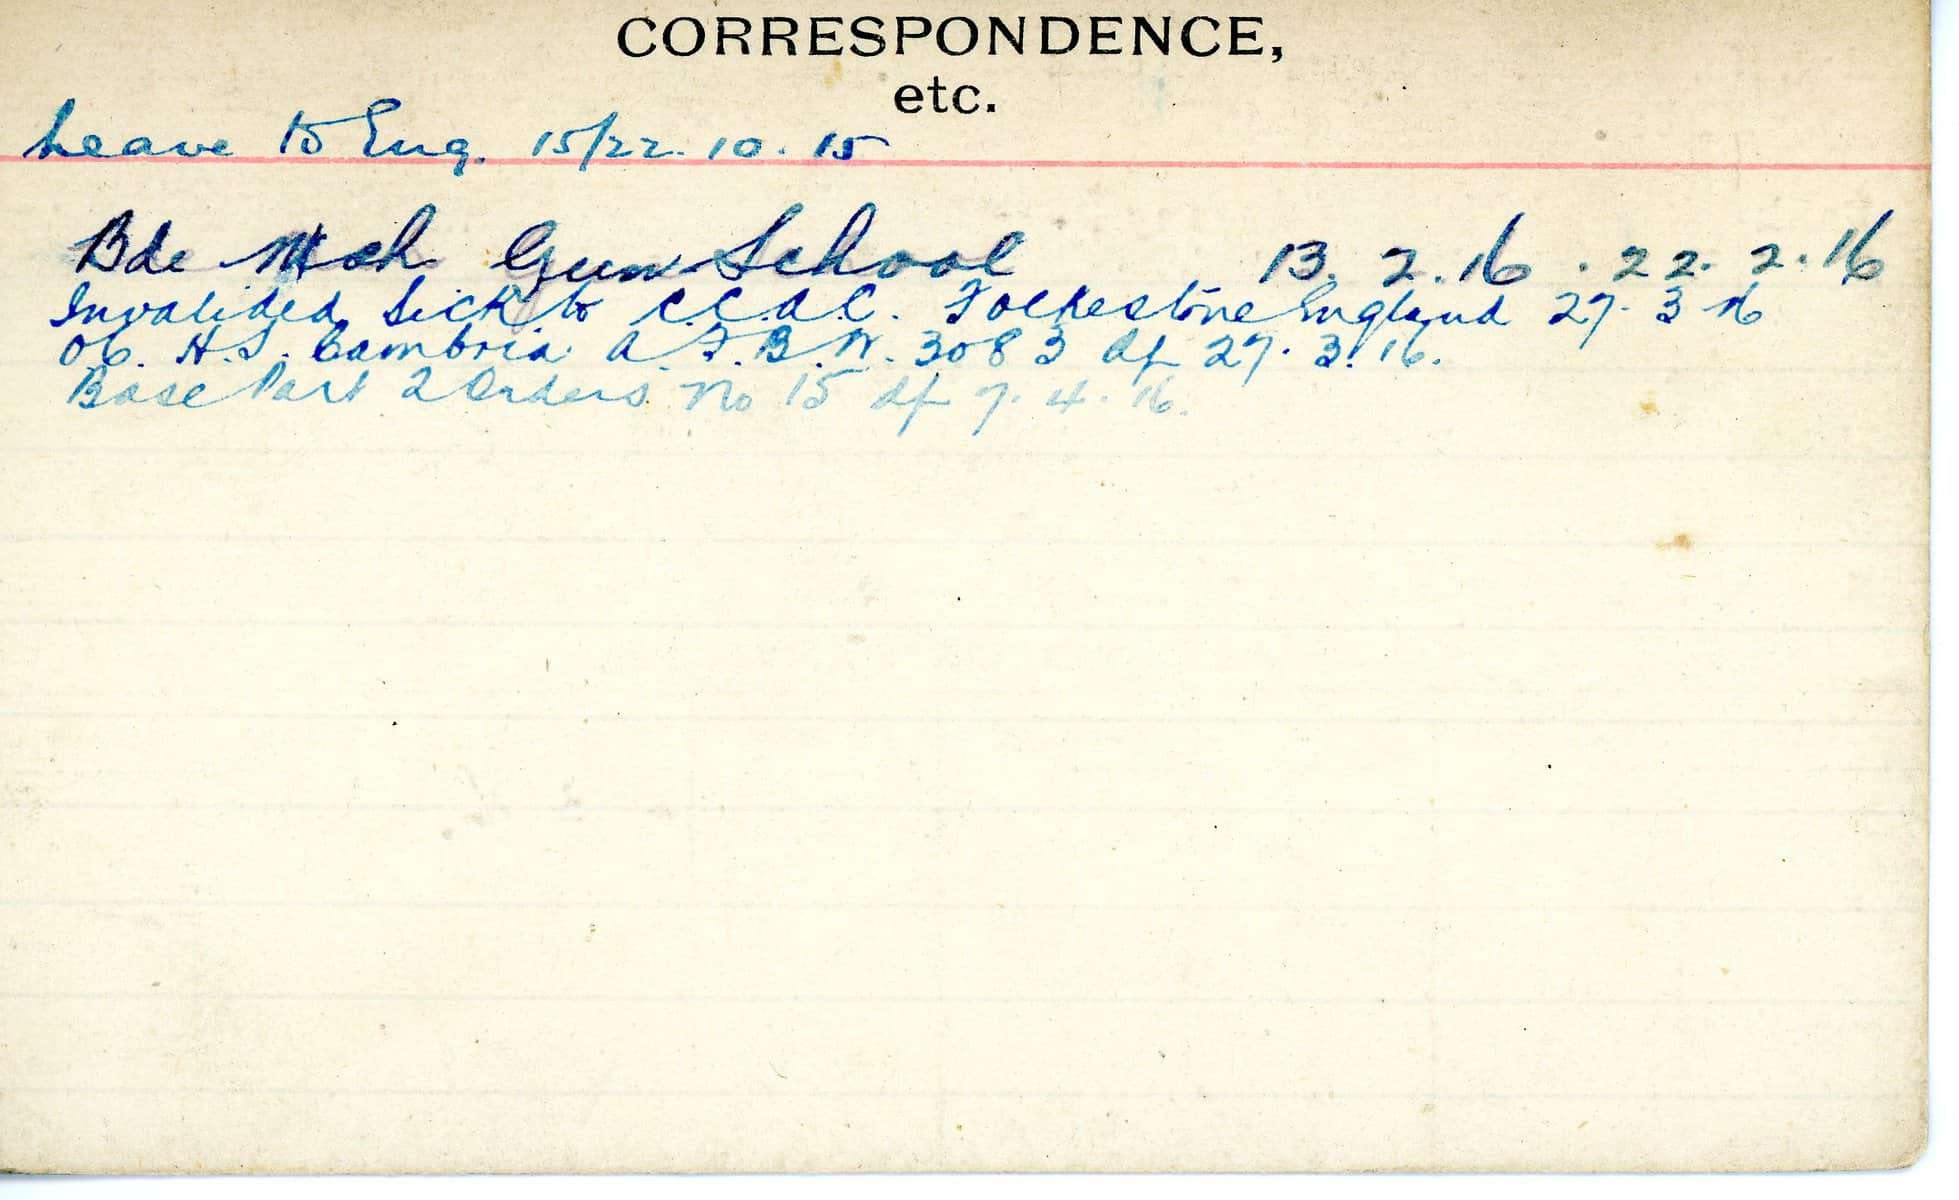 CORRESPONDENCE,
etc.
Leave to Eng. 15/22. 10. 15
Bde Mch Gun School 13. 2. 16 . 22. 2. 16
Invalided Sick to C.C.A.C. Folkestone England 27. 3 16
Ob. H.S. Cambria A.F.B.W. 3083 df 27. 3. 16.
Base Part 2 Orders No 15 df 7. 4. 16.